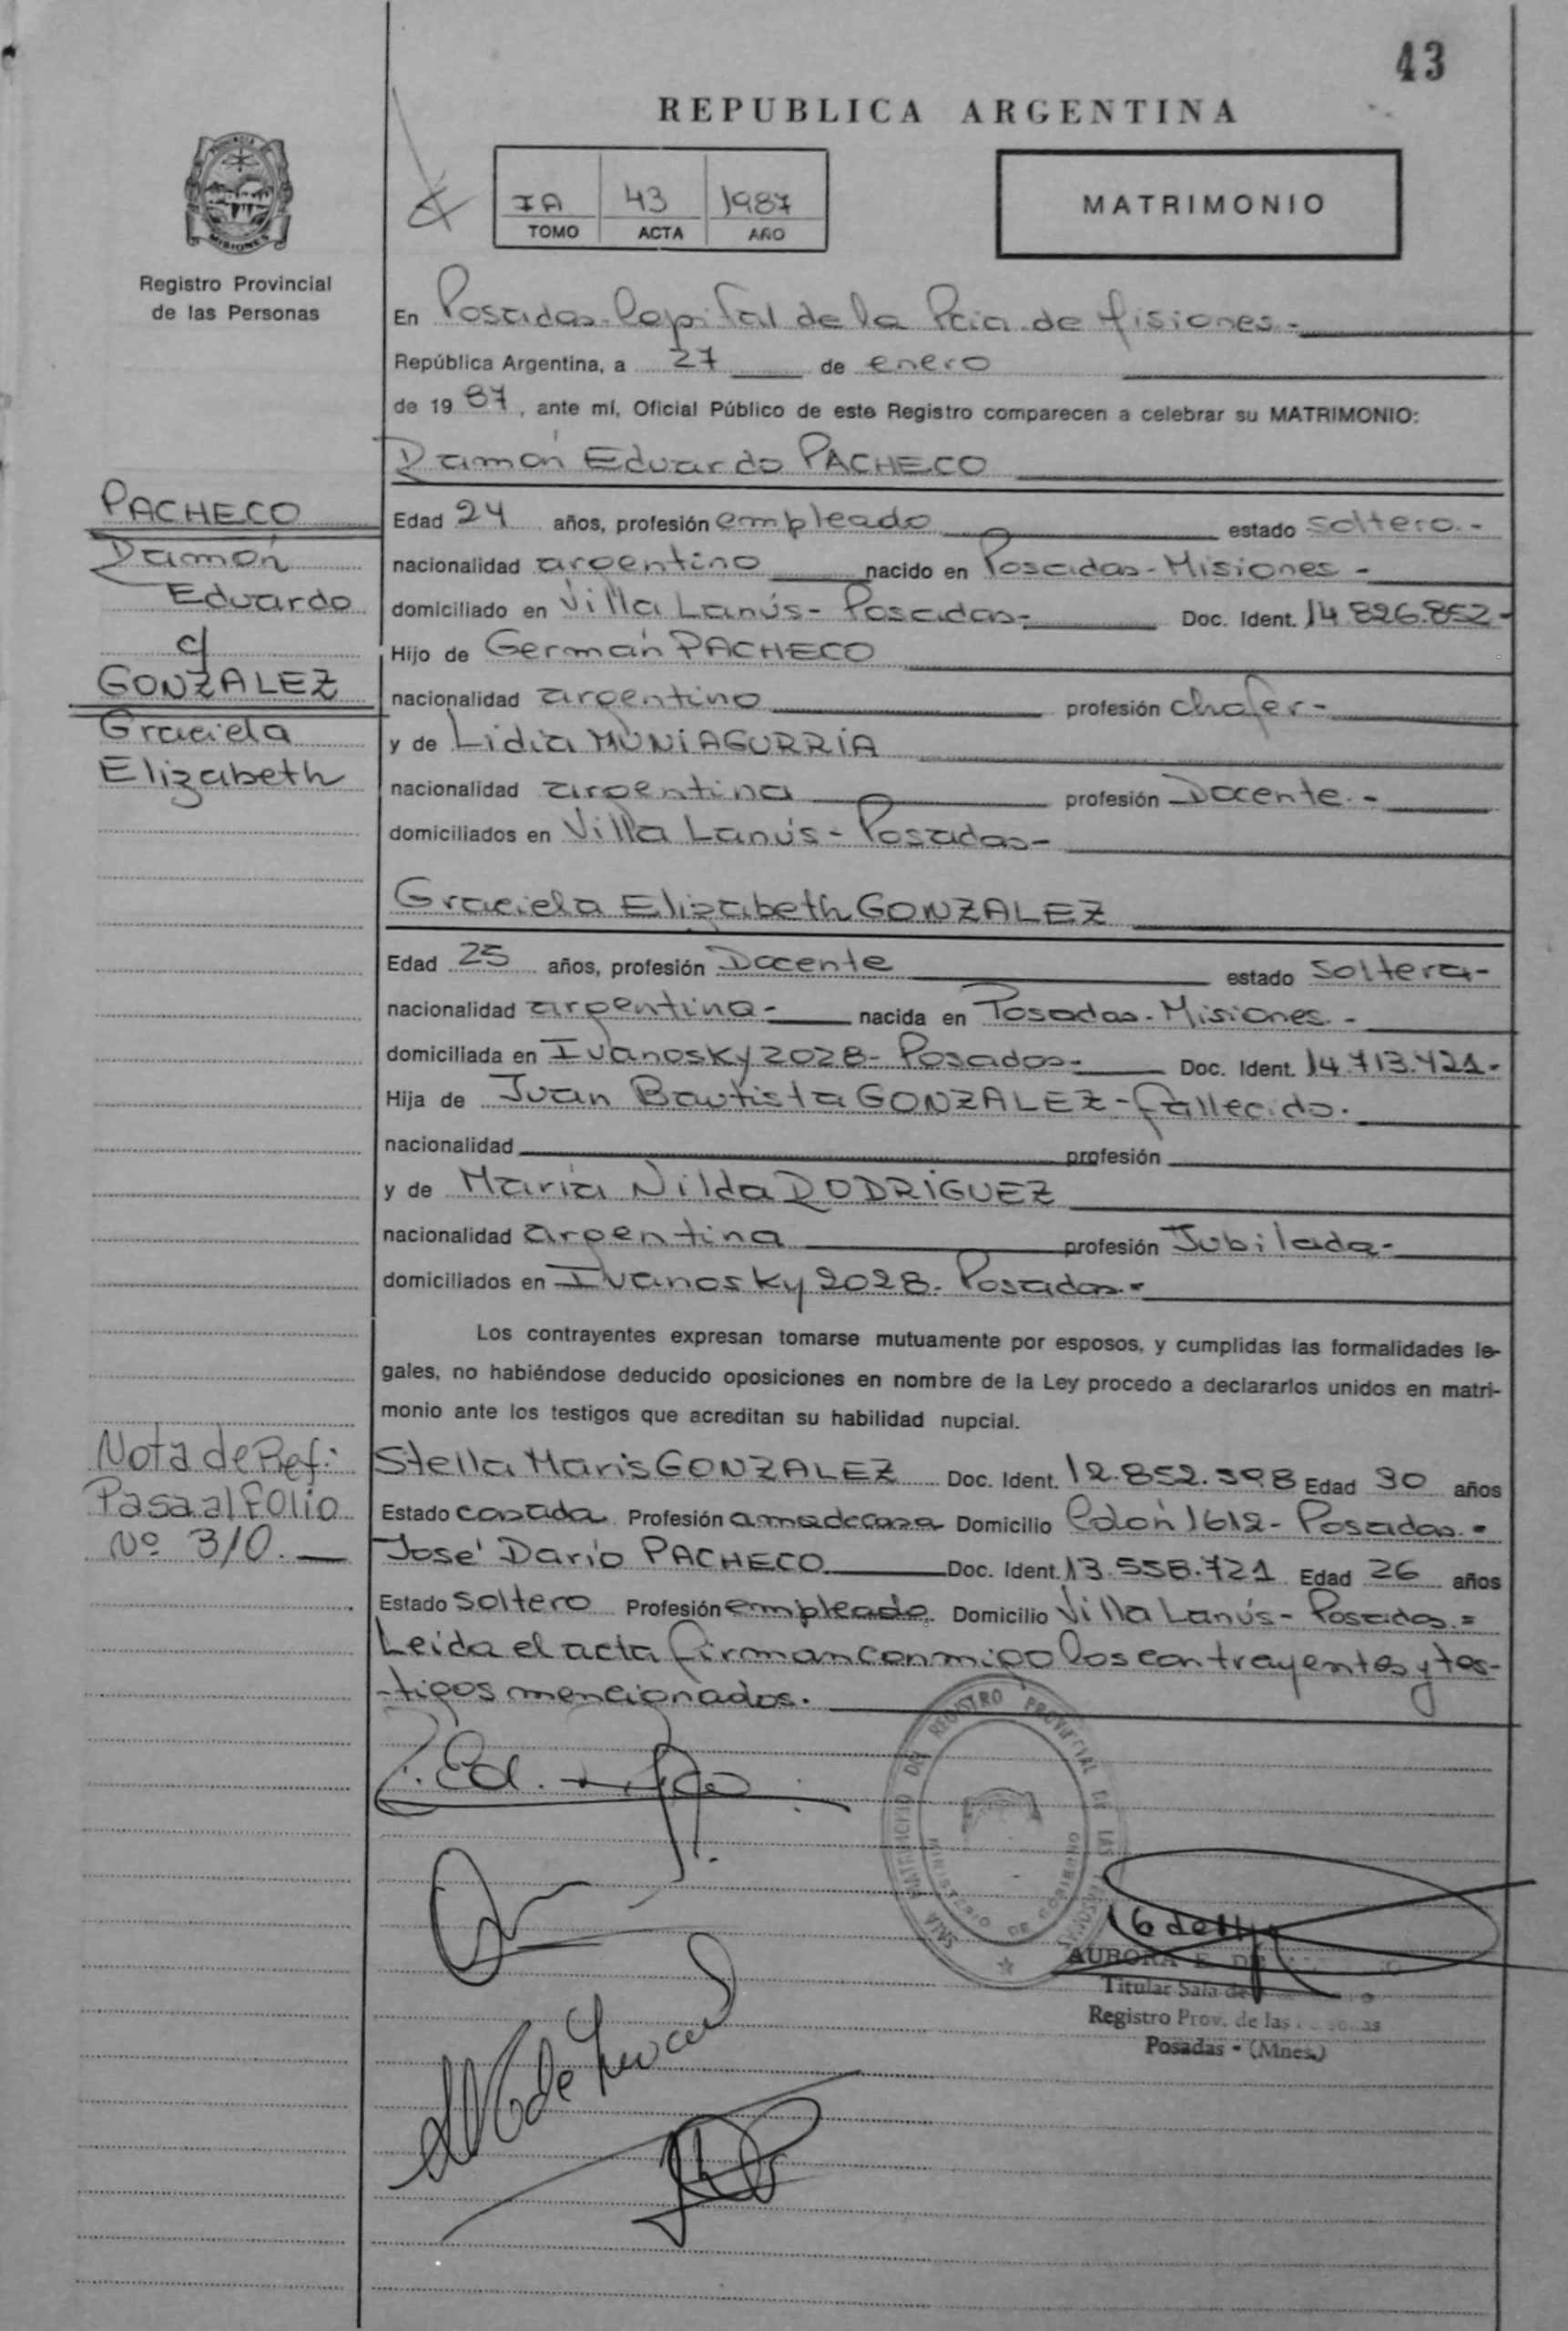 43
REPUBLICA ARGENTINA
PROVINCIA
MISIONES
Registro Provincial
de las Personas
IA 43 1987
TOMO ACTA AÑO
MATRIMONIO
En Posadas-Capital de la Pcia. de Misiones-
República Argentina, a 27 de enero
de 1987, ante mí, Oficial Público de este Registro comparecen a celebrar su MATRIMONIO:
Ramón Eduardo PACHECO
PACHECO
Ramón
Eduardo
c/
GONZALEZ
Graciela
Elizabeth
Edad 24 años, profesión empleado estado soltero.-
nacionalidad argentino nacido en Posadas-Misiones-
domiciliado en Villa Lanús- Posadas- Doc. Ident. 14.826.852-
Hijo de Germán PACHECO
nacionalidad argentino profesión chofer-
y de Lidia MUNIAGURRIA
nacionalidad argentina profesión Docente.-
domiciliados en Villa Lanús- Posadas-
Graciela Elizabeth GONZALEZ
Edad 25 años, profesión Docente estado soltera-
nacionalidad argentina- nacida en Posadas-Misiones.-
domiciliada en Ivanosky 2028- Posadas- Doc. Ident. 14.713.421-
Hija de Juan Bautista GONZALEZ-fallecido.
nacionalidad profesión
y de María Nilda RODRÍGUEZ
nacionalidad argentina profesión Jubilada-
domiciliados en Ivanosky 2028. Posadas.-
Los contrayentes expresan tomarse mutuamente por esposos, y cumplidas las formalidades le-
gales, no habiéndose deducido oposiciones en nombre de la Ley procedo a declararlos unidos en matri-
monio ante los testigos que acreditan su habilidad nupcial.
Nota de Ref:
Pasa al Folio
Nº 310.
Stella Maris GONZALEZ Doc. Ident. 12.852.398 Edad 30 años
Estado casada Profesión ama de casa Domicilio Colón 1612- Posadas.-
José Darío PACHECO Doc. Ident. 13.558.721 Edad 26 años
Estado soltero Profesión empleado Domicilio Villa Lanús- Posadas.=
Leida el acta firman conmigo los contrayentes y tes-
-tigos mencionados.
SALA MATRIMONIO DEL REGISTRO PROVINCIAL DE LAS PERSONAS
MINISTERIO DE GOBIERNO
AURORA E. DE
Titular Sala de
Registro Prov. de las Personas
Posadas - (Mnes.)